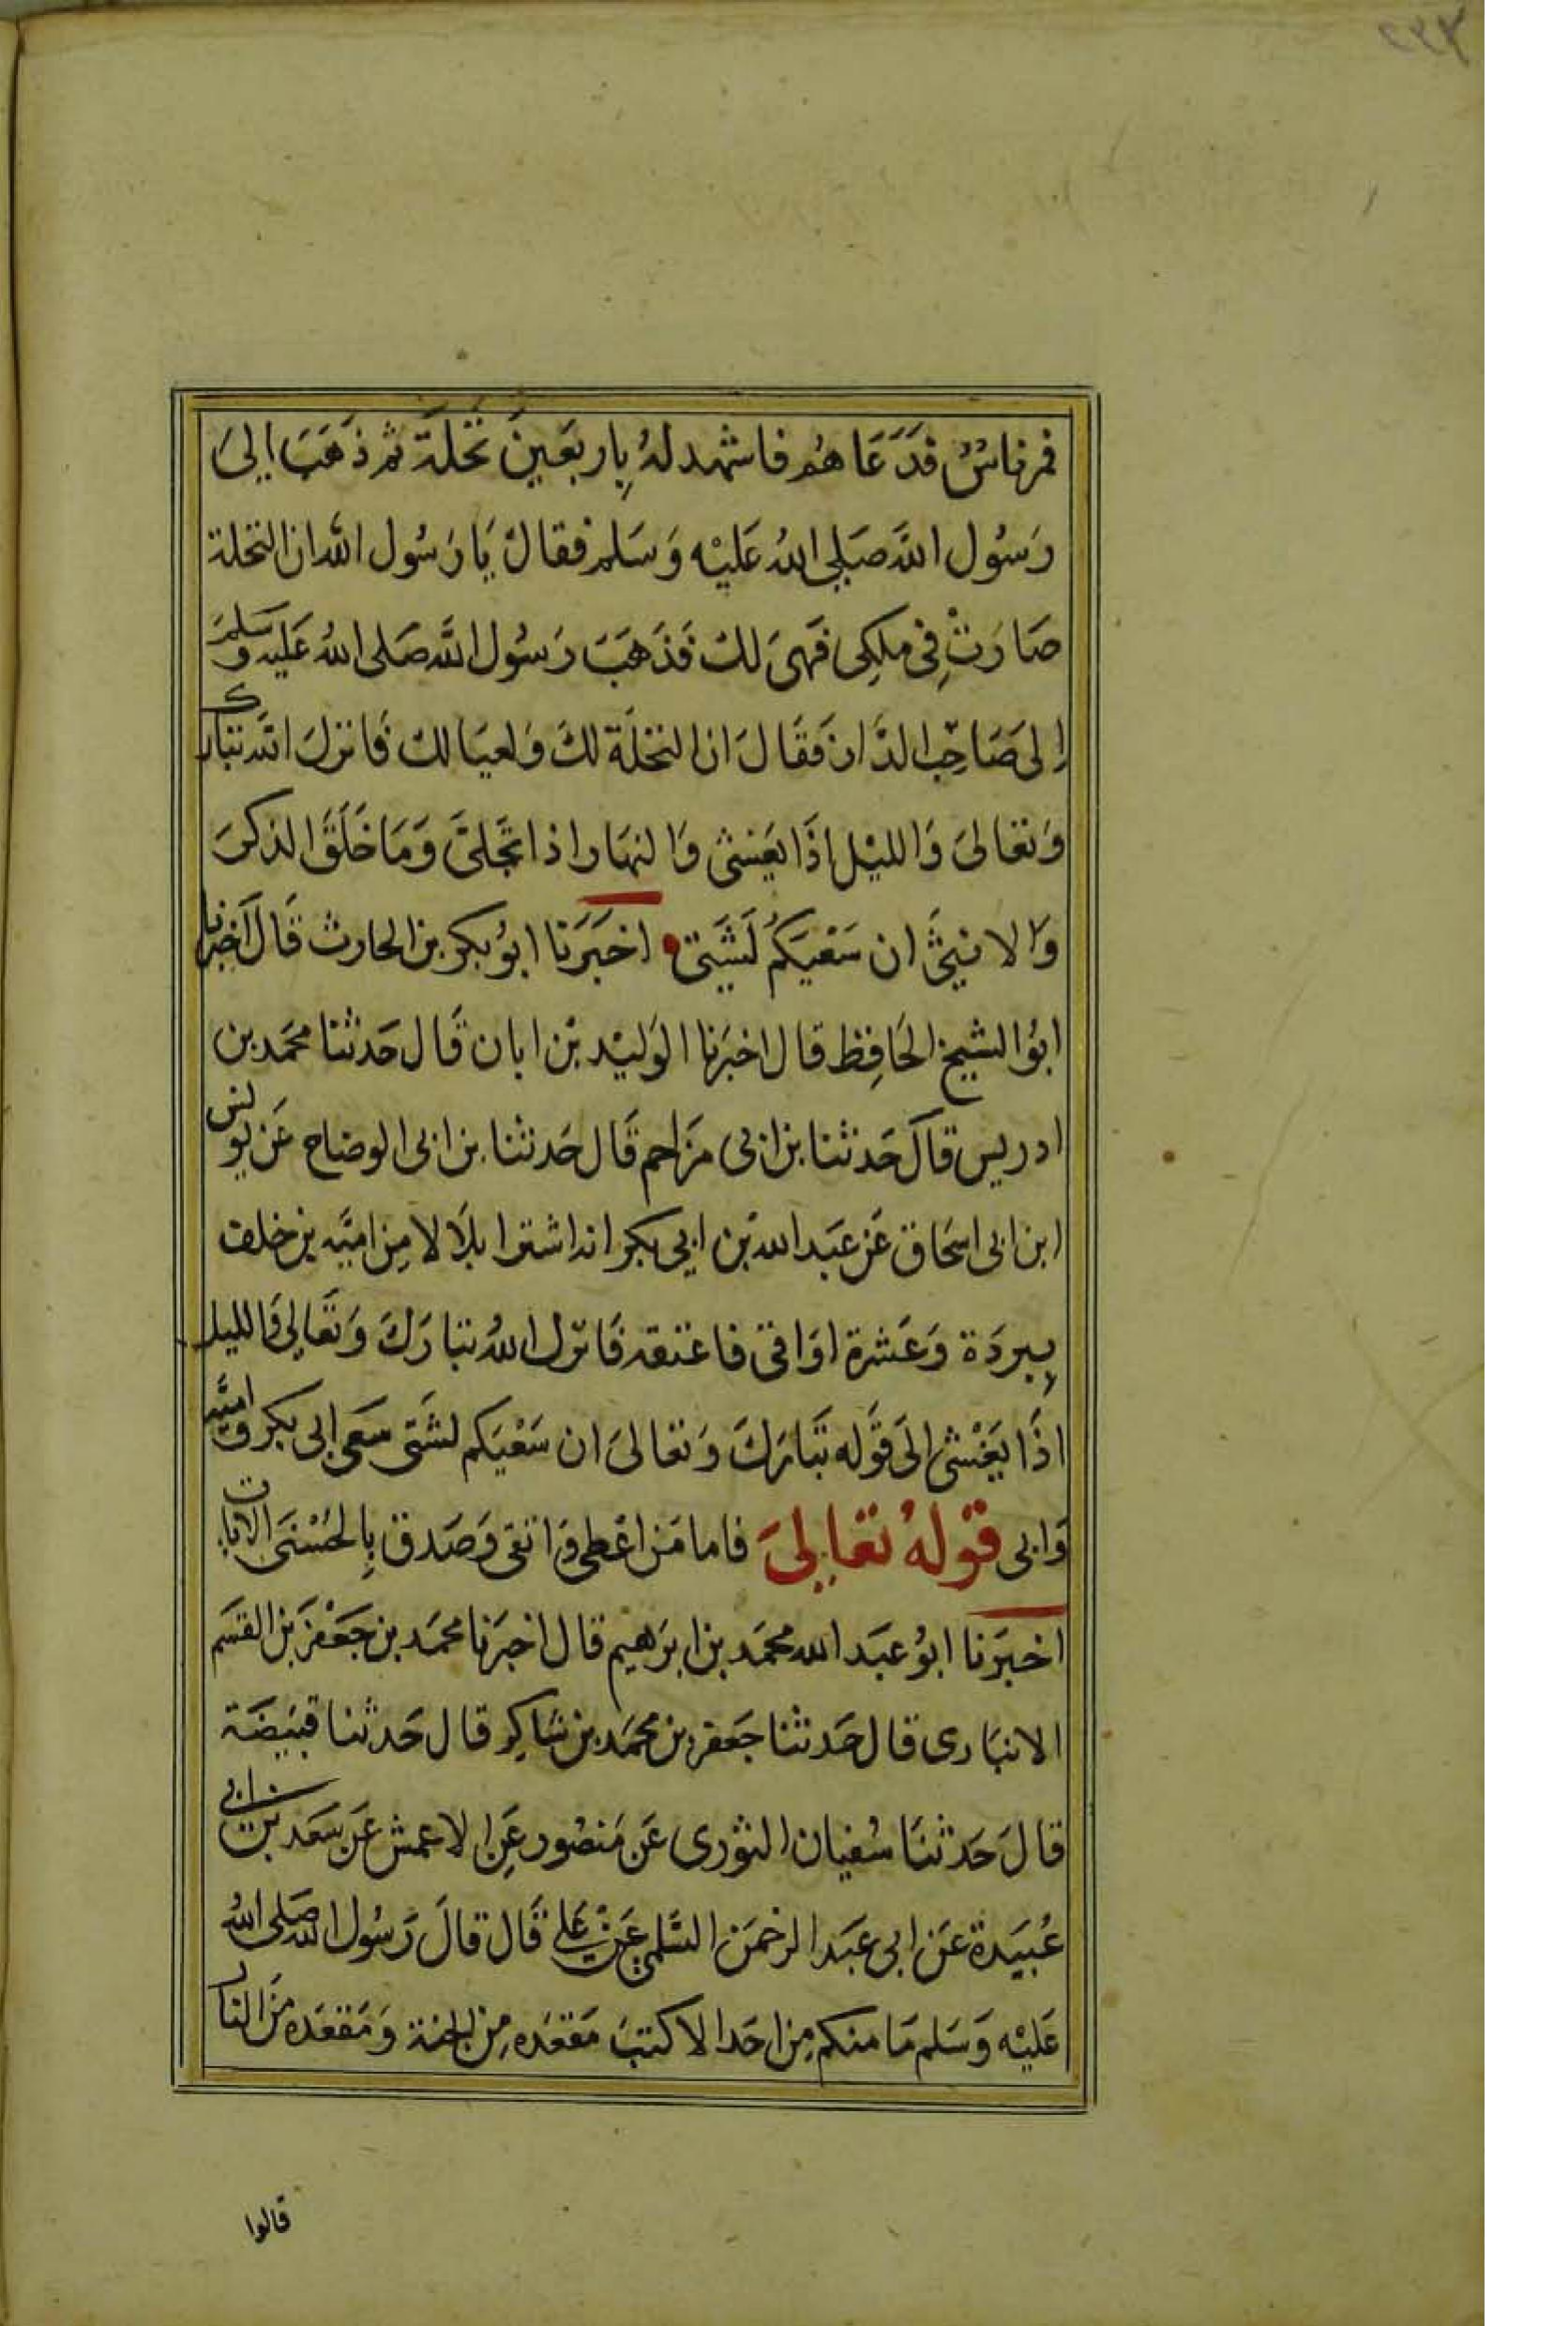 فمر ناس فدعاهم فاشهد له باربعين نخلة ثم ذهب الى
رسول الله صلى الله عليه وسلم فقال يا رسول الله ان النخلة
صارت في ملكي فهى لك فذهب رسول الله صلى الله عليه وسلم
إلى صاحب الدار فقال ان النخلة لك ولعيالك فانزل الله تبارك
وتعالى والليل اذا يغشى والنهار اذا تجلى وما خلق الذكر
والانثى ان سعيكم لشتى اخبرنا ابو بكر بن الحارث قال اخبرنا
ابو الشيخ الحافظ قال اخبرنا الوليد بن ابان قال حدثنا محمد بن
ادريس قال حدثنا بن ابى مزاحم قال حدثنا بن ابى الوضاح عن يونس
ابن ابى اسحاق عن عبد الله بن ابي بكر انه اشترا بلالا من اميه بن خلف
ببردة وعشرة اواقى فاعتقه فانزل الله تبارك وتعالى والليل
اذا يغشى الى قوله تبارك وتعالى ان سعيكم لشتى سعى ابى بكر واميه
وابى قوله تعالى فاما من اعطى واتقى وصدق بالحسنى الايات
اخبرنا ابو عبد الله محمد بن ابرهيم قال اخبرنا محمد بن جعفر بن القسم
الانبارى قال حدثنا جعفر بن محمد بن شاكر قال حدثنا قبيضة
قال حدثنا سفيان الثورى عن منصور عن الاعمش عن سعد بن ابى
عبيدة عن ابى عبد الرحمن السلمى عن على قال قال رسول الله صلى الله
عليه وسلم ما منكم من احد الا كتب مقعده من الجنة ومقعده من النار
قالوا